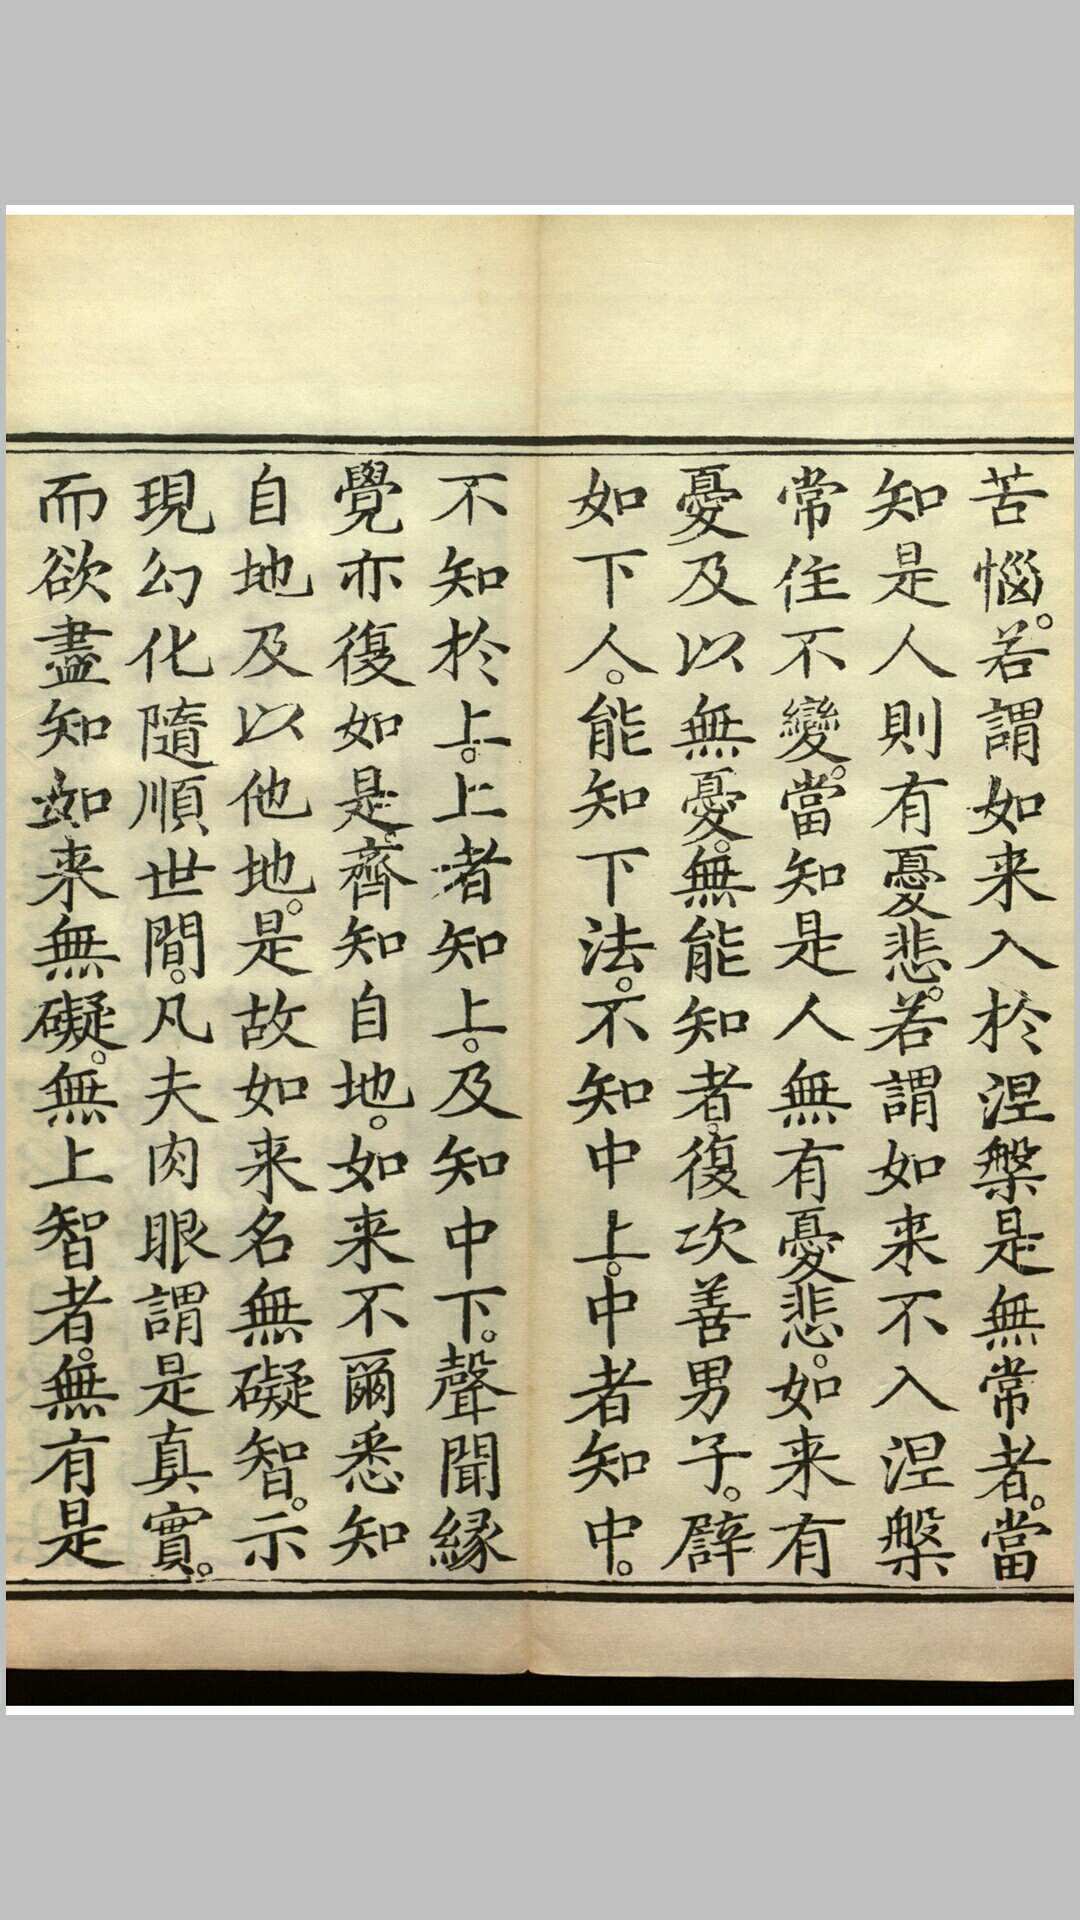 苦惱。若謂如来入於涅槃是無常者。當
知是人則有憂悲。若謂如来不入涅槃
常住不變。當知是人無有憂悲。如来有
憂及以無憂。無能知者。復次善男子。辟
如下人。能知下法。不知中上。中者知中。
不知於上。上者知上。及知中下。聲聞緣
覺亦復如是。齊知自地。如来不爾悉知
自地及以他地。是故如来名無礙智。示
現幻化隨順世間。凡夫肉眼謂是真實。
而欲盡知如来無礙。無上智者。無有是